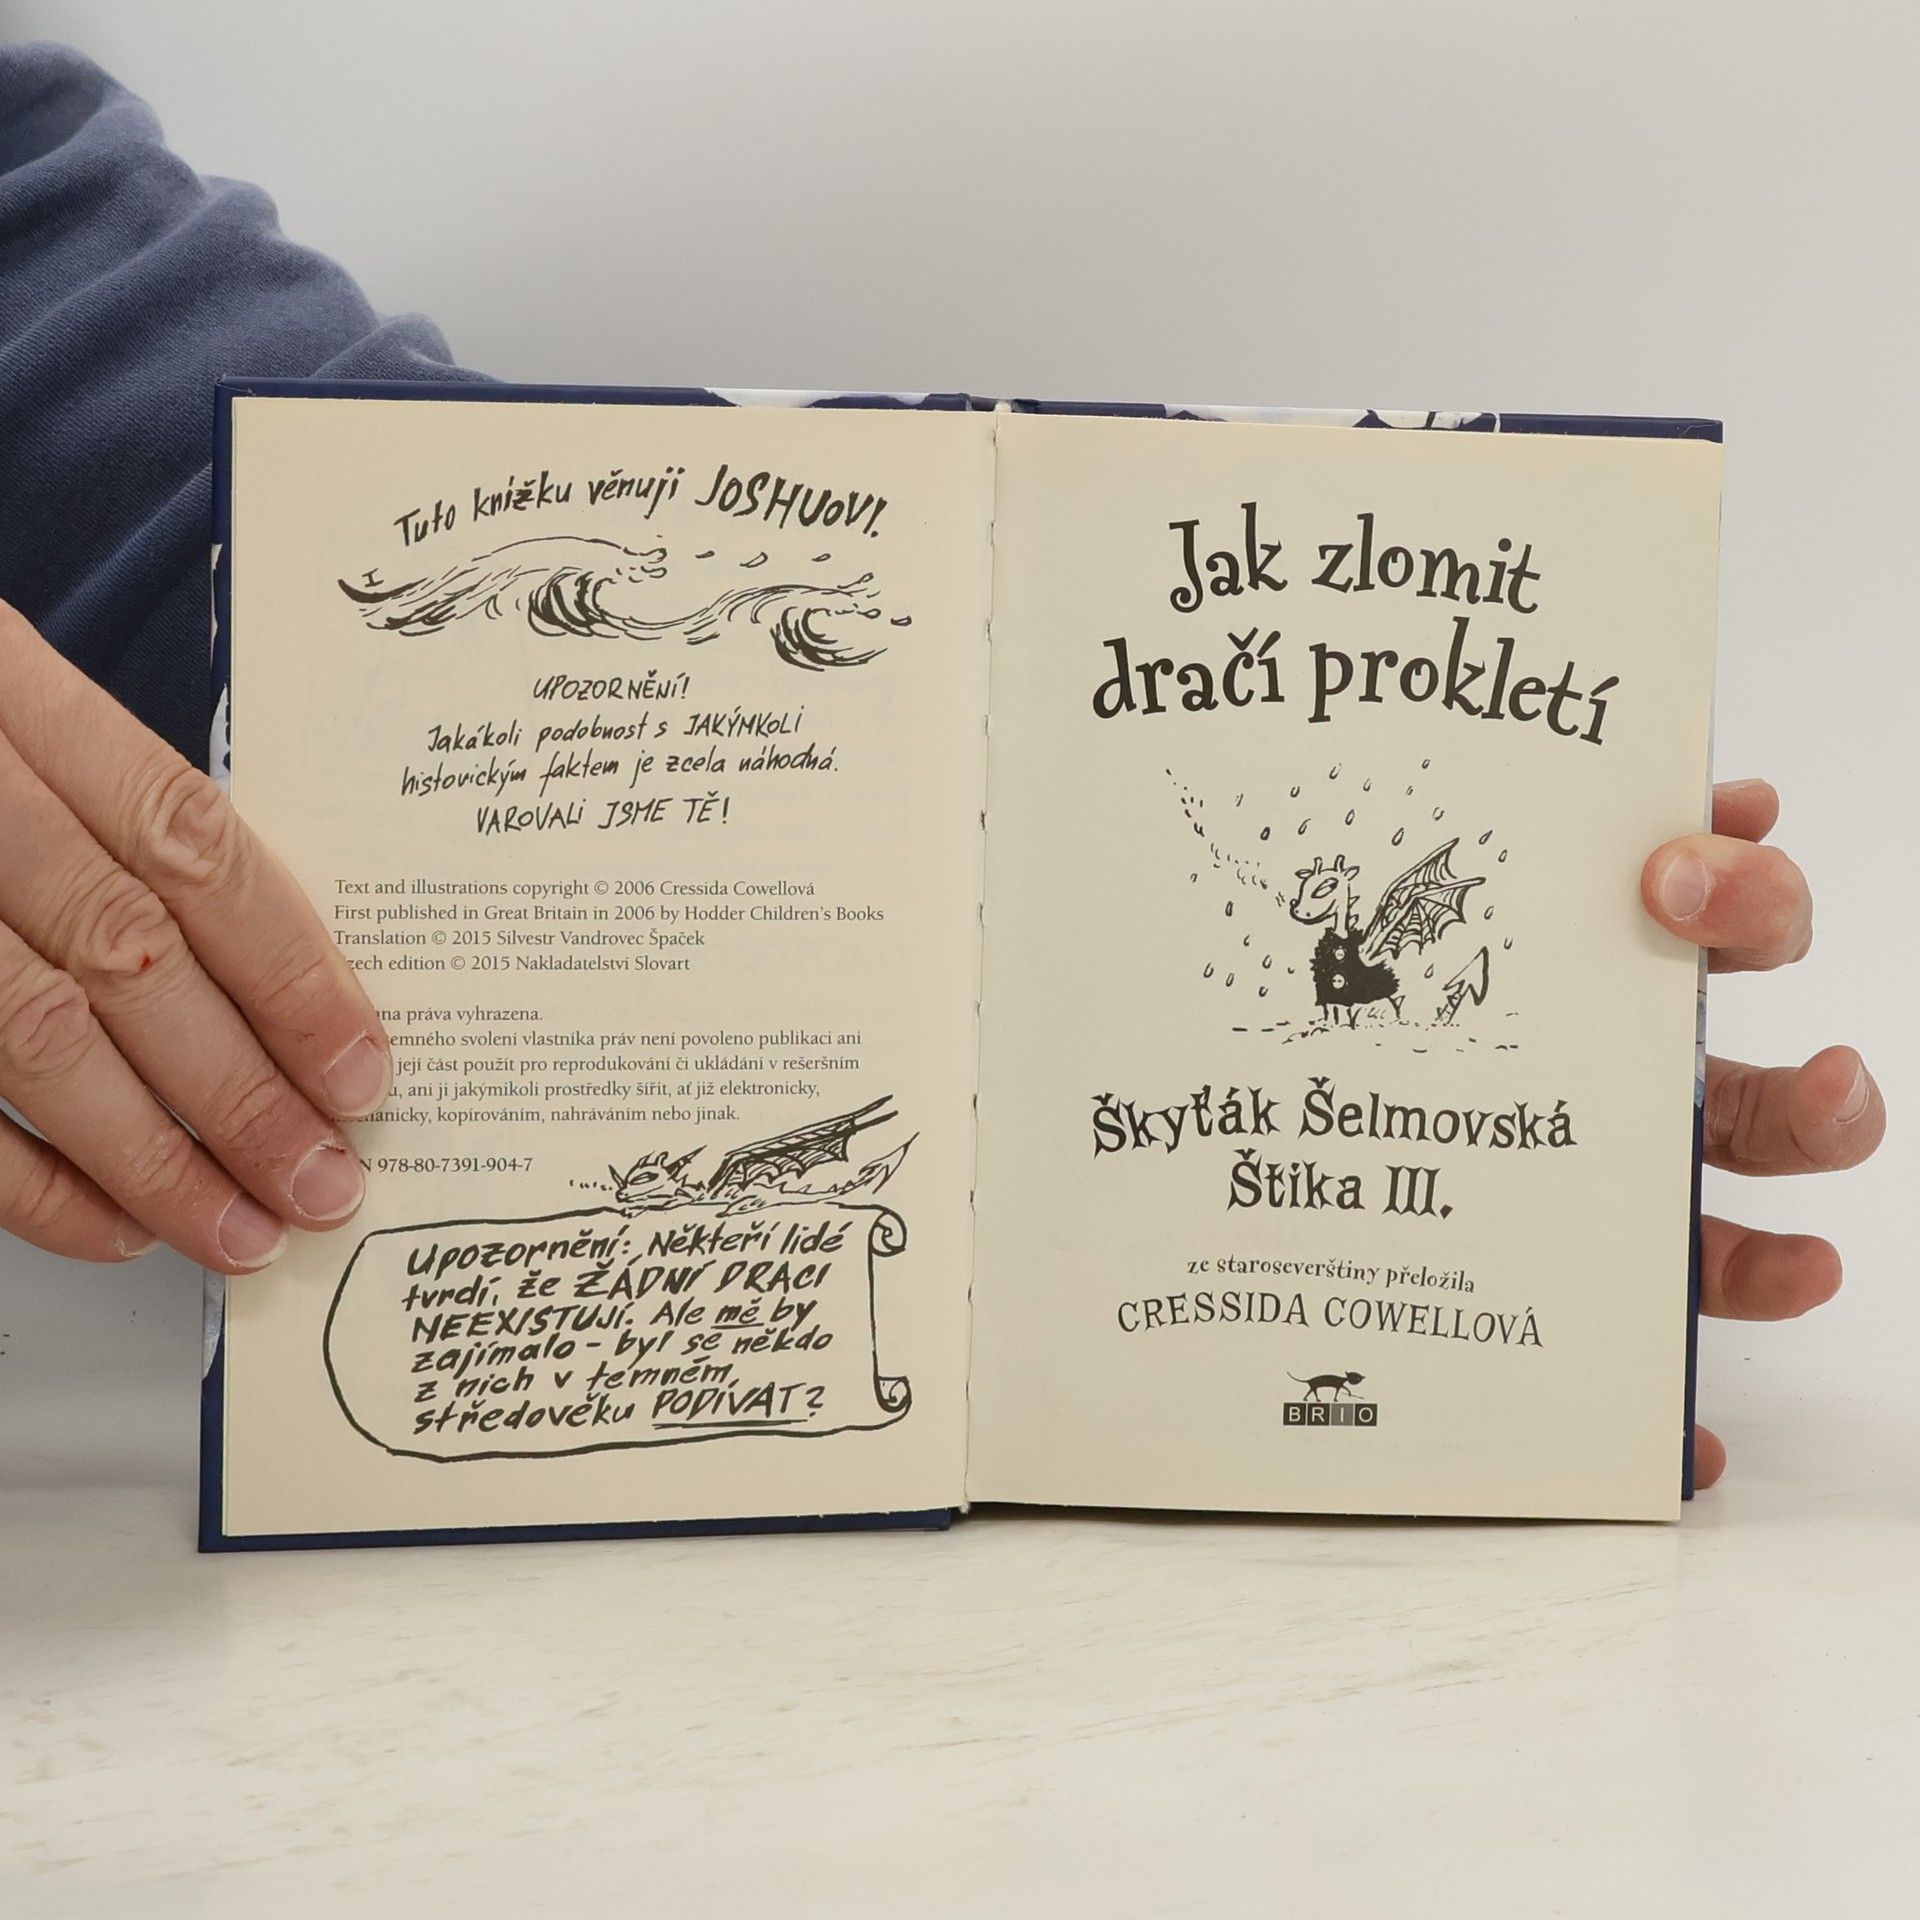 Tuto knížku věnuji JOSHUOVI.
UPOZORNĚNÍ!
Jakákoli podobnost s JAKÝMKOLI
historickým faktem je zcela náhodná.
VAROVALI JSME TĚ!
Text and illustrations copyright © 2006 Cressida Cowellová
First published in Great Britain in 2006 by Hodder Children's Books
Translation © 2015 Silvestr Vandrovec Špaček
edition © 2015 Nakladatelství Slovart
práva vyhrazena.
svolení vlastníka práv není povoleno publikaci ani
její část použít pro reprodukování či ukládání v rešeršním
ani ji jakýmikoli prostředky šířit, ať již elektronicky,
kopírováním, nahráváním nebo jinak.
978-80-7391-904-7
Upozornění: Někteří lidé
tvrdí, že ŽÁDNÍ DRACI
NEEXISTUJÍ. Ale mě by
zajímalo - byl se někdo
z nich v temném
středověku PODÍVAT?
Jak zlomit
dračí prokletí
Škyťák Šelmovská
Štika III.
ze staroseverštiny přeložila
CRESSIDA COWELLOVÁ
BRIO